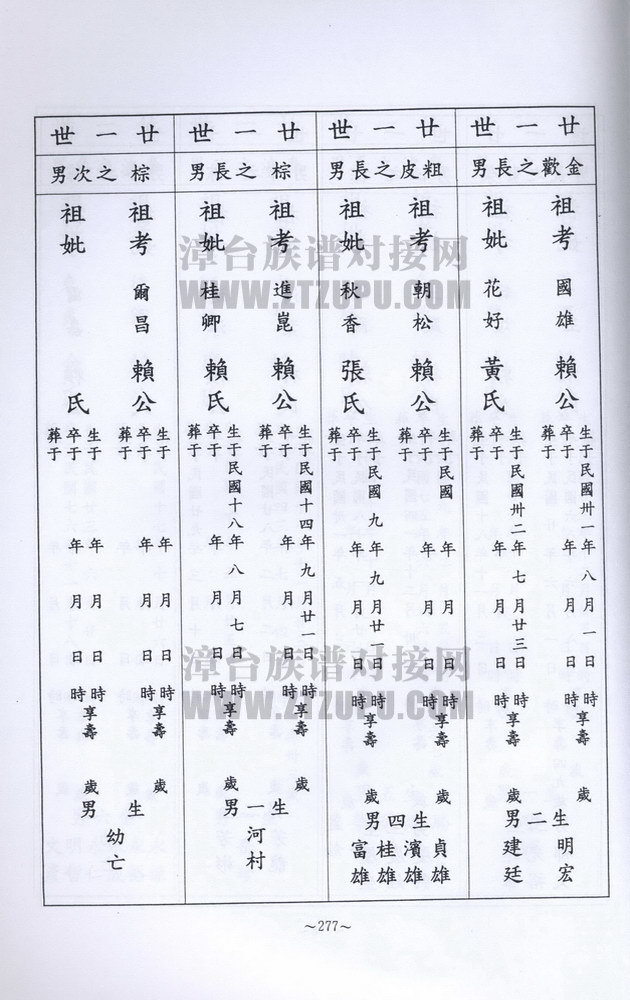 廿一世
金歡之長男
祖考 國雄 賴公
生于民國卅一年八月一日時享壽 歲
卒于 年 月 日 時
葬于
祖妣 花好 黃氏
生于民國卅二年七月廿三日時享壽 歲
卒于 年 月 日 時
葬于
生二男
明宏
建廷
廿一世
粗皮之長男
祖考 朝松 賴公
生于民國 年 月 日時享壽 歲
卒于 年 月 日 時
葬于
祖妣 秋香 張氏
生于民國九年九月廿一日時享壽 歲
卒于 年 月 日 時
葬于
生四男
貞雄
濱雄
桂雄
富雄
廿一世
棕之長男
祖考 進崑 賴公
生于民國十四年九月廿一日時享壽 歲
卒于 年 月 日 時
葬于
祖妣 桂卿 賴氏
生于民國十八年八月七日時享壽 歲
卒于 年 月 日 時
葬于
生一男
河村
廿一世
棕之次男
祖考 爾昌 賴公
生于 年 月 日時享壽 歲
卒于 年 月 日 時
葬于
祖妣 氏
生于 年 月 日時享壽 歲
卒于 年 月 日 時
葬于
生 男
幼亡
～277～
漳台族谱对接网
WWW.ZTZUPU.COM
漳台族谱对接网
WWW.ZTZUPU.COM